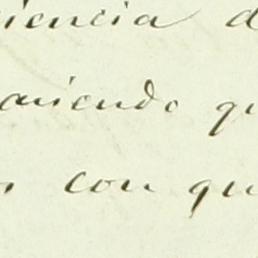 iencia d
aniendo qu
con qu